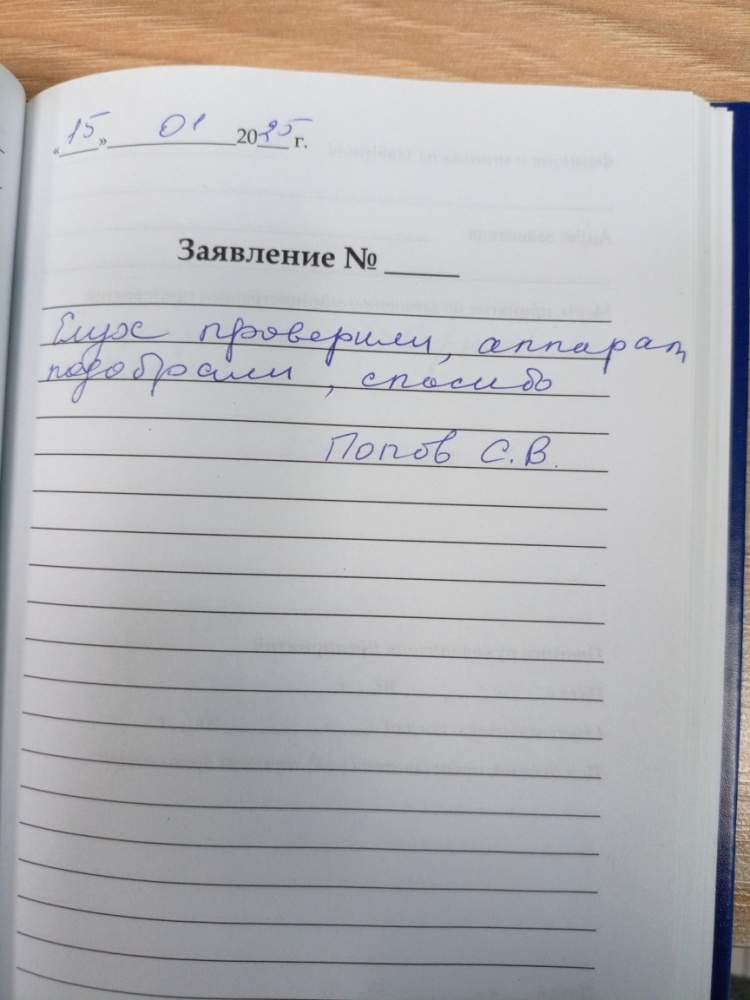 «15» 01 2025 г.
Заявление № ____
Слух проверили, аппарат
подобрали, спасибо
Попов С.В.